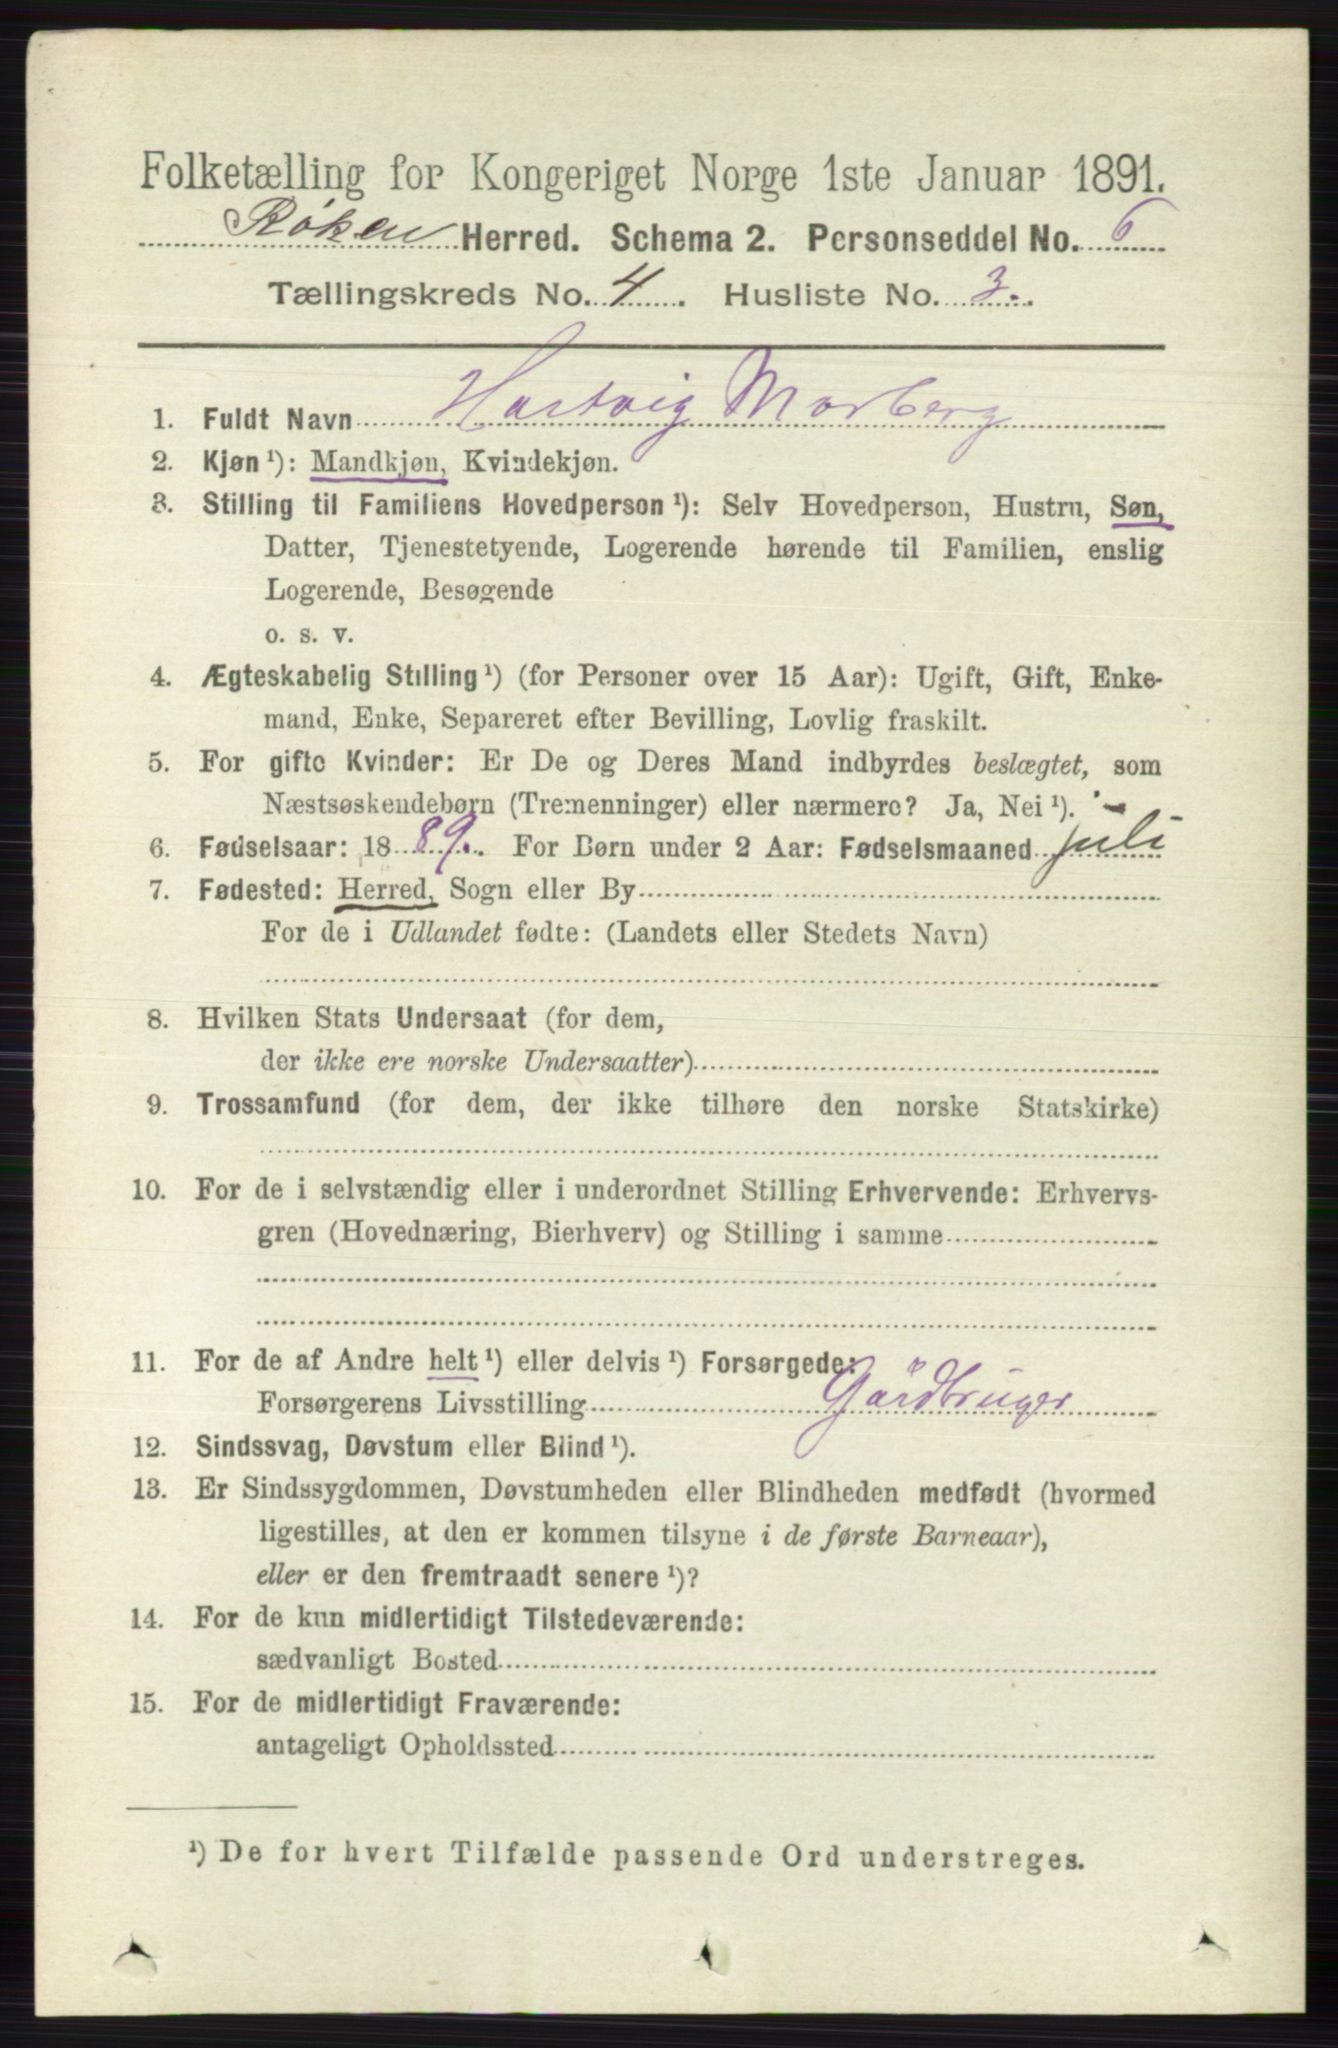 Folketælling for Kongeriget Norge 1ste Januar 1891.
Røken Herred. Schema 2. Personseddel No. 6
Tællingskreds No. 4. Husliste No. 3.
1. Fuldt Navn Hartvig Morberg
2. Kjøn ¹): Mandkjøn, Kvindekjøn.
3. Stilling til Familiens Hovedperson ¹): Selv Hovedperson, Hustru, Søn,
Datter, Tjenestetyende, Logerende hørende til Familien, enslig
Logerende, Besøgende
o. s. v.
4. Ægteskabelig Stilling ¹) (for Personer over 15 Aar): Ugift, Gift, Enke-
mand, Enke, Separeret efter Bevilling, Lovlig fraskilt.
5. For gifte Kvinder: Er De og Deres Mand indbyrdes beslægtet, som
Næstsøskendebørn (Tremenninger) eller nærmere? Ja, Nei ¹).
6. Fødselsaar: 1889. For Børn under 2 Aar: Fødselsmaaned juli
7. Fødested: Herred, Sogn eller By
For de i Udlandet fødte: (Landets eller Stedets Navn)
8. Hvilken Stats Undersaat (for dem,
der ikke ere norske Undersaatter)
9. Trossamfund (for dem, der ikke tilhøre den norske Statskirke)
10. For de i selvstændig eller i underordnet Stilling Erhvervende: Erhvervs-
gren (Hovednæring, Bierhverv) og Stilling i samme
11. For de af Andre helt ¹) eller delvis ¹) Forsørgede:
Forsørgerens Livsstilling Gårdbruger
12. Sindssvag, Døvstum eller Blind ¹).
13. Er Sindssygdommen, Døvstumheden eller Blindheden medfødt (hvormed
ligestilles, at den er kommen tilsyne i de første Barneaar),
eller er den fremtraadt senere ¹)?
14. For de kun midlertidigt Tilstedeværende:
sædvanligt Bosted
15. For de midlertidigt Fraværende:
antageligt Opholdssted
¹) De for hvert Tilfælde passende Ord understreges.